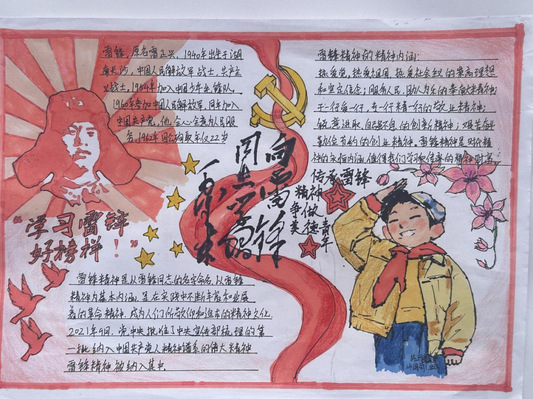 雷锋,原名雷正兴,1940年出生于湖
南长沙,中国人民解放军战士,共产主
义战士,1954年加入中国少年先锋队,
1960年参加中国人民解放军,同年加入
中国共产党,他全心全意为人民服
务,1962年因公殉职,年仅22岁
雷锋精神的精神内涵:
热爱党、热爱祖国、热爱社会主义的崇高理想
和坚定信念;服务人民、助人为乐的奉献精神;
干一行爱一行、专一行精一行的敬业精神;
锐意进取、自强不息的创新精神;艰苦奋斗
勤俭节约的创业精神,雷锋精神是对
向雷锋
同志学习
毛泽东
传承雷锋
精神
争做
美德
青年
“学习雷锋
好榜样!”
雷锋精神是以雷锋同志的名字命名,以雷锋
精神为基本内涵,在实践中不断丰富和发展
着的革命精神,成为人们所敬仰和追求的精神文化。
2021年9月,党中央批准了中央宣传部梳理的第
一批纳入中国共产党人精神谱系的伟大精神
雷锋精神被纳入其中